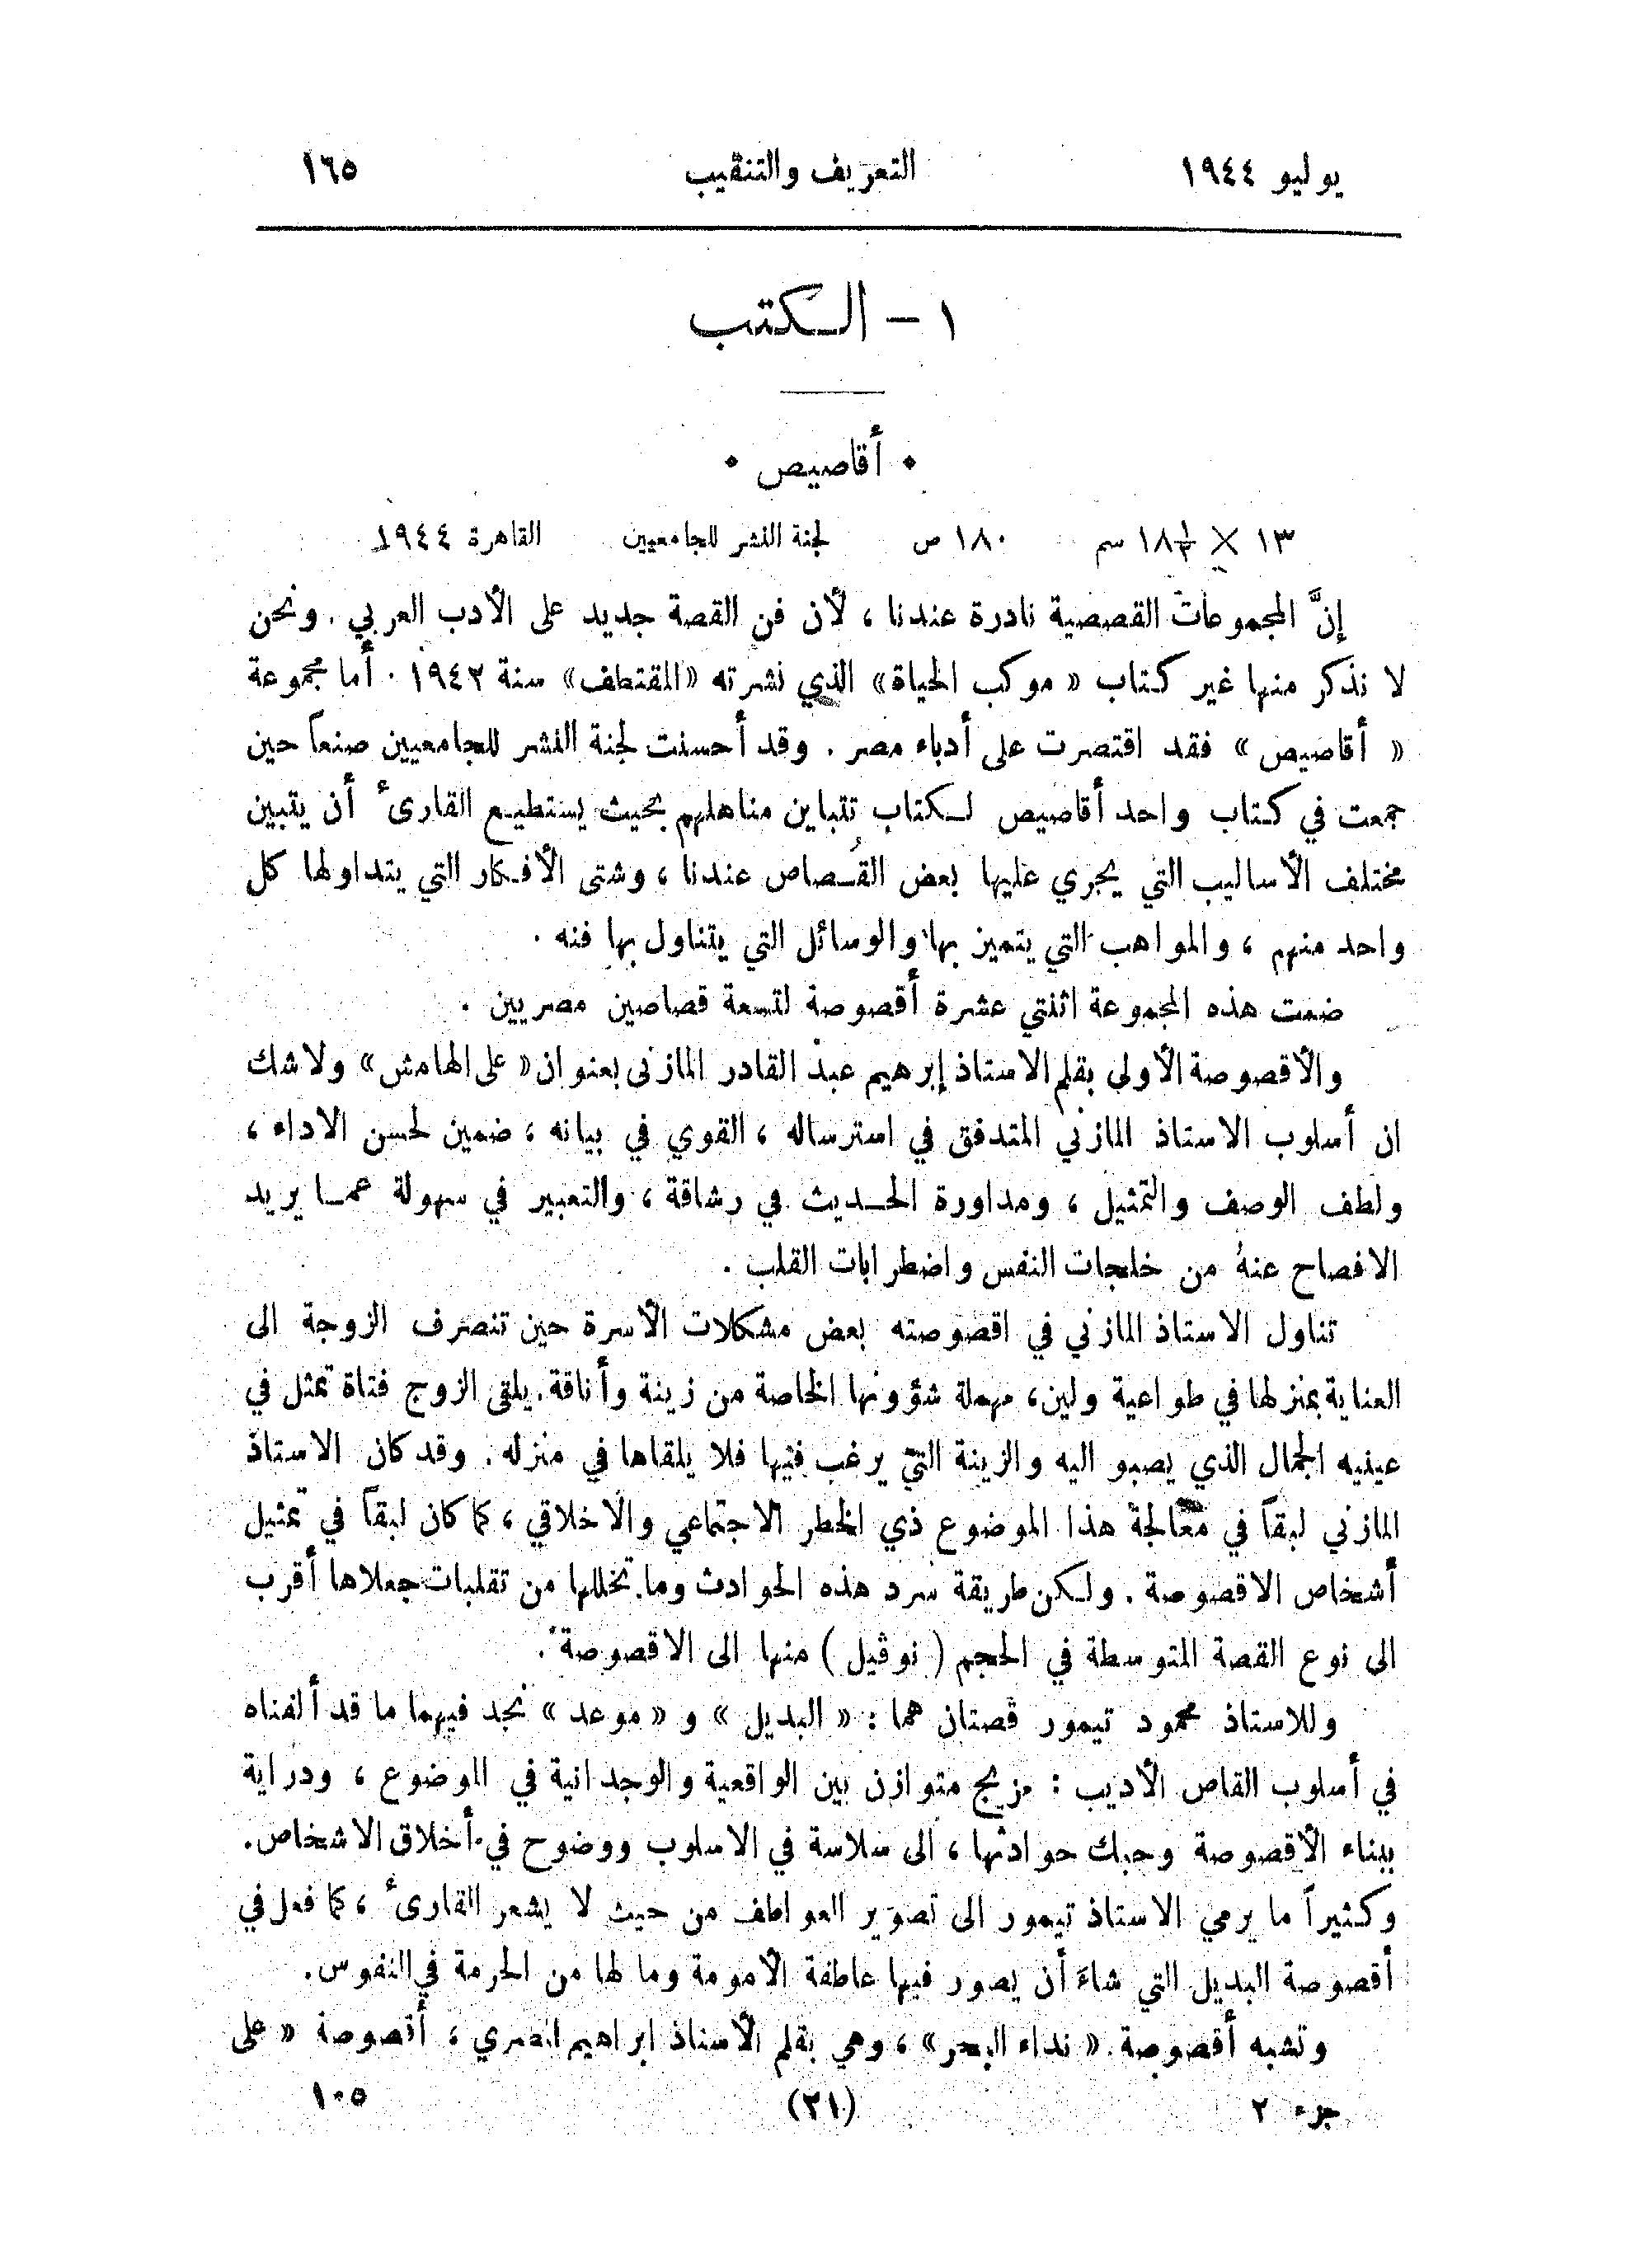 يوليو ١٩٤٤ التعريف والتنقيب ١٦٥
١ - الكتب
• أقاصيص •
١٣ × ١٨½ سم ١٨٠ ص لجنة النشر للجامعيين القاهرة ١٩٤٤
إنَّ المجموعات القصصية نادرة عندنا ، لأن فن القصة جديد على الأدب العربي . ونحن
لا نذكر منها غير كتاب « موكب الحياة» الذي نشرته «المقتطف» سنة ١٩٤٢ . أما مجموعة
« أقاصيص » فقد اقتصرت على أدباء مصر . وقد أحسنت لجنة النشر للجامعيين صنعاً حين
جمعت في كتاب واحد أقاصيص لكتاب تتباين مناهلهم بحيث يستطيع القارىء أن يتبين
مختلف الأساليب التي يجري عليها بعض القُصاص عندنا ، وشتى الأفكار التي يتداولها كل
واحد منهم ، والمواهب التي يتميز بها والوسائل التي يتناول بها فنه .
ضمت هذه المجموعة اثنتي عشرة أقصوصة لتسعة قصاصين مصريين .
والأقصوصة الأولى بقلم الاستاذ إبرهيم عبد القادر المازني بعنوان « على الهامش » ولا شك
ان أسلوب الاستاذ المازني المتدفق في استرساله ، القوي في بيانه ، ضمين لحسن الاداء ،
ولطف الوصف والتمثيل ، ومداورة الحديث في رشاقة ، والتعبير في سهولة عما يريد
الافصاح عنهُ من خلجات النفس واضطرابات القلب .
تناول الاستاذ المازني في اقصوصته بعض مشكلات الأسرة حين تنصرف الزوجة الى
العناية بمنزلها في طواعية ولين، مهملة شؤونها الخاصة من زينة وأناقة. يلقى الزوج فتاة تمثل في
عينيه الجمال الذي يصبو اليه والزينة التي يرغب فيها فلا يلقاها في منزله . وقد كان الاستاذ
المازني لبقاً في معالجة هذا الموضوع ذي الخطر الاجتماعي والاخلاقي ، كما كان لبقاً في تمثيل
أشخاص الاقصوصة . ولكن طريقة سرد هذه الحوادث وما تخللها من تقلبات جعلاها أقرب
الى نوع القصة المتوسطة في الحجم ( نوڤيل ) منها الى الاقصوصة .
وللاستاذ محمود تيمور قصتان هما : « البديل » و « موعد » نجد فيهما ما قد ألفناه
في أسلوب القاص الأديب : مزيج متوازن بين الواقعية والوجدانية في الموضوع ، ودراية
ببناء الأقصوصة وحبك حوادثها ، الى سلاسة في الاسلوب ووضوح في أخلاق الاشخاص.
وكثيراً ما يرمي الاستاذ تيمور الى تصوير العواطف من حيث لا يشعر القارىء ، كما فعل في
أقصوصة البديل التي شاءَ أن يصور فيها عاطفة الأمومة وما لها من الحرمة في النفوس.
وتشبه أقصوصة « نداء البحر » ، وهي بقلم الأستاذ ابراهيم المصري ، أقصوصة « على
جزء ٢ (٢١) ١٠٥